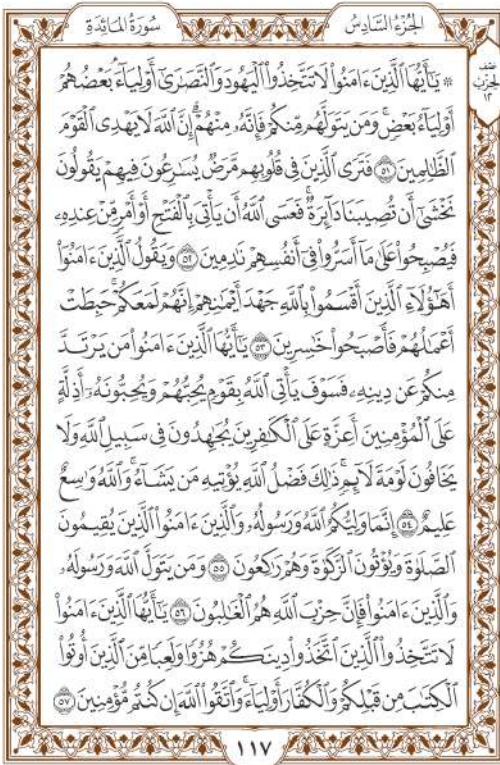 سُورَةُ المَائِدَةِ
الجُزْءُ السَّادِسُ
نصف
الحزب
١٢
۞ يَٰٓأَيُّهَا ٱلَّذِينَ ءَامَنُوا۟ لَا تَتَّخِذُوا۟ ٱلْيَهُودَ وَٱلنَّصَٰرَىٰٓ أَوْلِيَآءَ بَعْضُهُمْ
أَوْلِيَآءُ بَعْضٍ وَمَن يَتَوَلَّهُم مِّنكُمْ فَإِنَّهُۥ مِنْهُمْ إِنَّ ٱللَّهَ لَا يَهْدِى ٱلْقَوْمَ
ٱلظَّٰلِمِينَ ٥١ فَتَرَى ٱلَّذِينَ فِى قُلُوبِهِم مَّرَضٌ يُسَٰرِعُونَ فِيهِمْ يَقُولُونَ
نَخْشَىٰٓ أَن تُصِيبَنَا دَآئِرَةٌ فَعَسَى ٱللَّهُ أَن يَأْتِىَ بِٱلْفَتْحِ أَوْ أَمْرٍ مِّنْ عِندِهِۦ
فَيُصْبِحُوا۟ عَلَىٰ مَآ أَسَرُّوا۟ فِىٓ أَنفُسِهِمْ نَٰدِمِينَ ٥٢ وَيَقُولُ ٱلَّذِينَ ءَامَنُوٓا۟
أَهَٰٓؤُلَآءِ ٱلَّذِينَ أَقْسَمُوا۟ بِٱللَّهِ جَهْدَ أَيْمَٰنِهِمْ إِنَّهُمْ لَمَعَكُمْ حَبِطَتْ
أَعْمَٰلُهُمْ فَأَصْبَحُوا۟ خَٰسِرِينَ ٥٣ يَٰٓأَيُّهَا ٱلَّذِينَ ءَامَنُوا۟ مَن يَرْتَدَّ
مِنكُمْ عَن دِينِهِۦ فَسَوْفَ يَأْتِى ٱللَّهُ بِقَوْمٍ يُحِبُّهُمْ وَيُحِبُّونَهُۥٓ أَذِلَّةٍ
عَلَى ٱلْمُؤْمِنِينَ أَعِزَّةٍ عَلَى ٱلْكَٰفِرِينَ يُجَٰهِدُونَ فِى سَبِيلِ ٱللَّهِ وَلَا
يَخَافُونَ لَوْمَةَ لَآئِمٍ ذَٰلِكَ فَضْلُ ٱللَّهِ يُؤْتِيهِ مَن يَشَآءُ وَٱللَّهُ وَٰسِعٌ
عَلِيمٌ ٥٤ إِنَّمَا وَلِيُّكُمُ ٱللَّهُ وَرَسُولُهُۥ وَٱلَّذِينَ ءَامَنُوا۟ ٱلَّذِينَ يُقِيمُونَ
ٱلصَّلَوٰةَ وَيُؤْتُونَ ٱلزَّكَوٰةَ وَهُمْ رَٰكِعُونَ ٥٥ وَمَن يَتَوَلَّ ٱللَّهَ وَرَسُولَهُۥ
وَٱلَّذِينَ ءَامَنُوا۟ فَإِنَّ حِزْبَ ٱللَّهِ هُمُ ٱلْغَٰلِبُونَ ٥٦ يَٰٓأَيُّهَا ٱلَّذِينَ ءَامَنُوا۟
لَا تَتَّخِذُوا۟ ٱلَّذِينَ ٱتَّخَذُوا۟ دِينَكُمْ هُزُوًا وَلَعِبًا مِّنَ ٱلَّذِينَ أُوتُوا۟
ٱلْكِتَٰبَ مِن قَبْلِكُمْ وَٱلْكُفَّارَ أَوْلِيَآءَ وَٱتَّقُوا۟ ٱللَّهَ إِن كُنتُم مُّؤْمِنِينَ ٥٧
١١٧